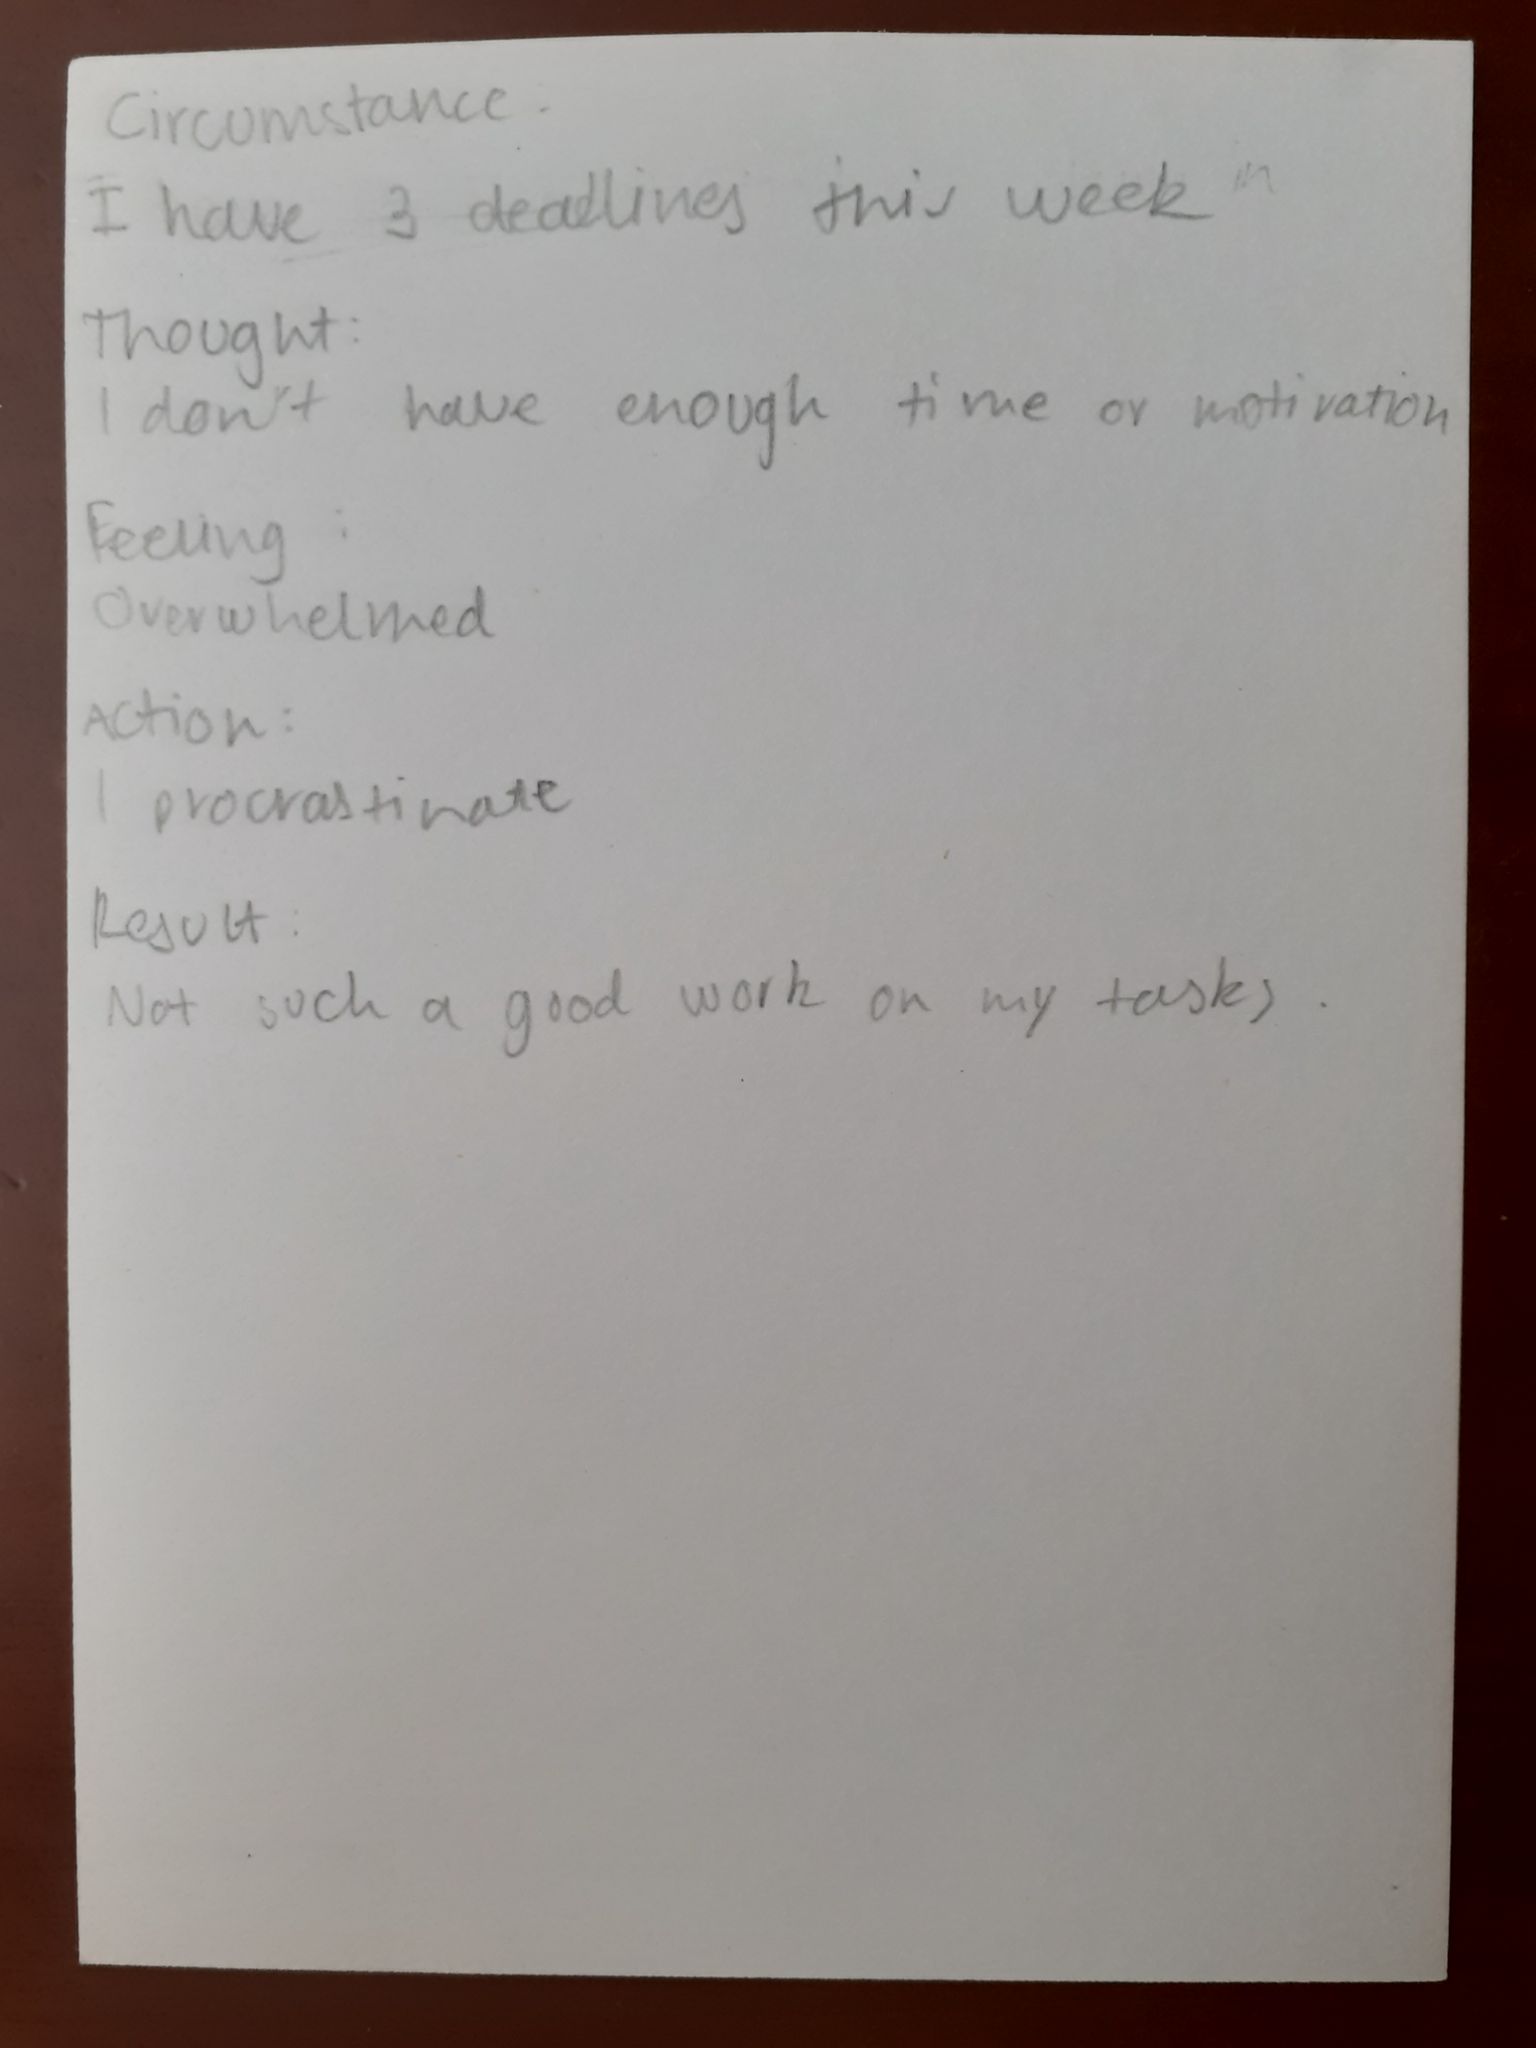 Circumstance:
I have 3 deadlines this week
Thought:
I don't have enough time or motivation
Feeling:
Overwhelmed
Action:
I procrastinate
Result:
Not such a good work on my tasks.